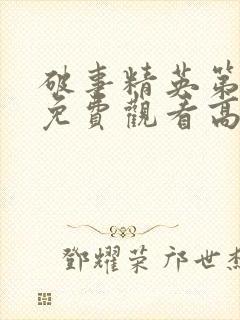 破事精英第
免費觀看高
鄧耀荣 邝世杰